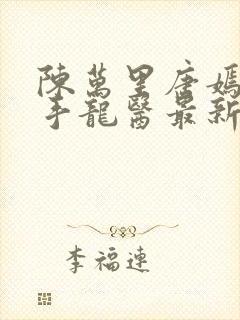 陳萬里唐嫣
手龍醫最新
李福連